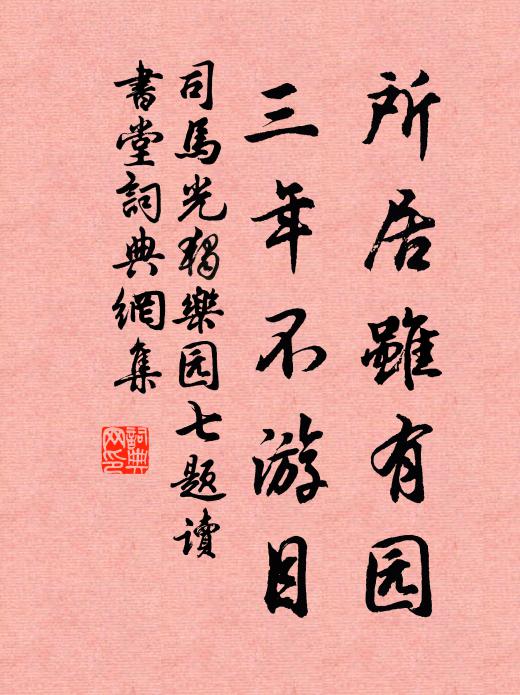 所居雖有园
三年不游目
司馬光獨樂园七題讀
書堂詞典網集
詞典
网印